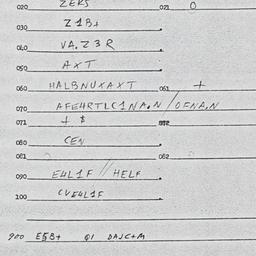 020 ZEKS 021 0
030 Z1B+
040 VA.Z3R
050 AXT
060 HALBNUXAXT 061 +
070 AFE4RTLC1NA.N/OFNA.N
071 + $
080 CEN
081 082
090 E4L1F//HELF
100 CVE4L1F
900 E5B+ Q1 DAJC+M